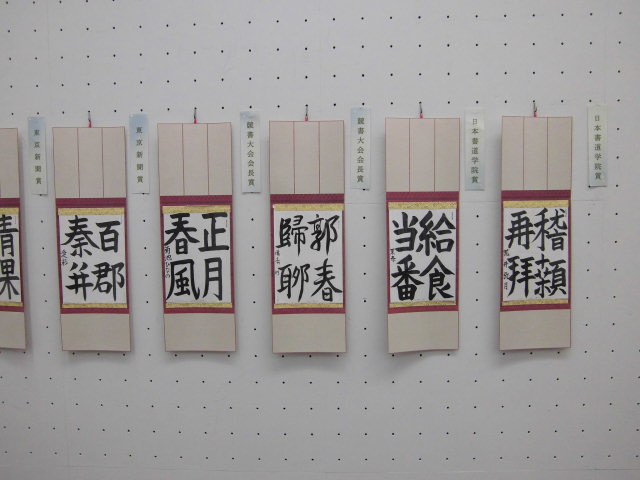 日本書道学院賞
稽顙
再拝
日本書道学院賞
給食
当番
競書大会会長賞
郭春
歸聊
競書大会会長賞
正月
春風
東京新聞賞
百郡
秦并
東京新聞賞
青果